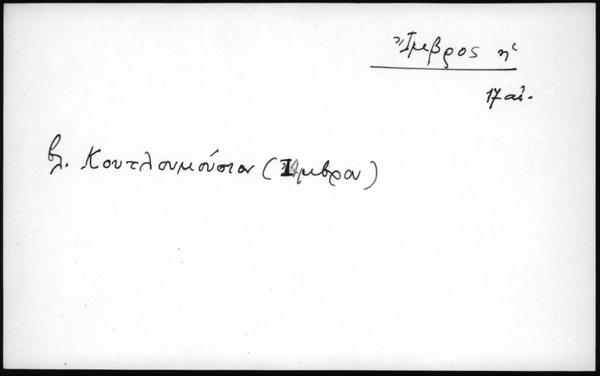 Ἴμβρος ἡ
17 αἰ.
βλ. Κουτλουμούσιον (Ἴμβρου)